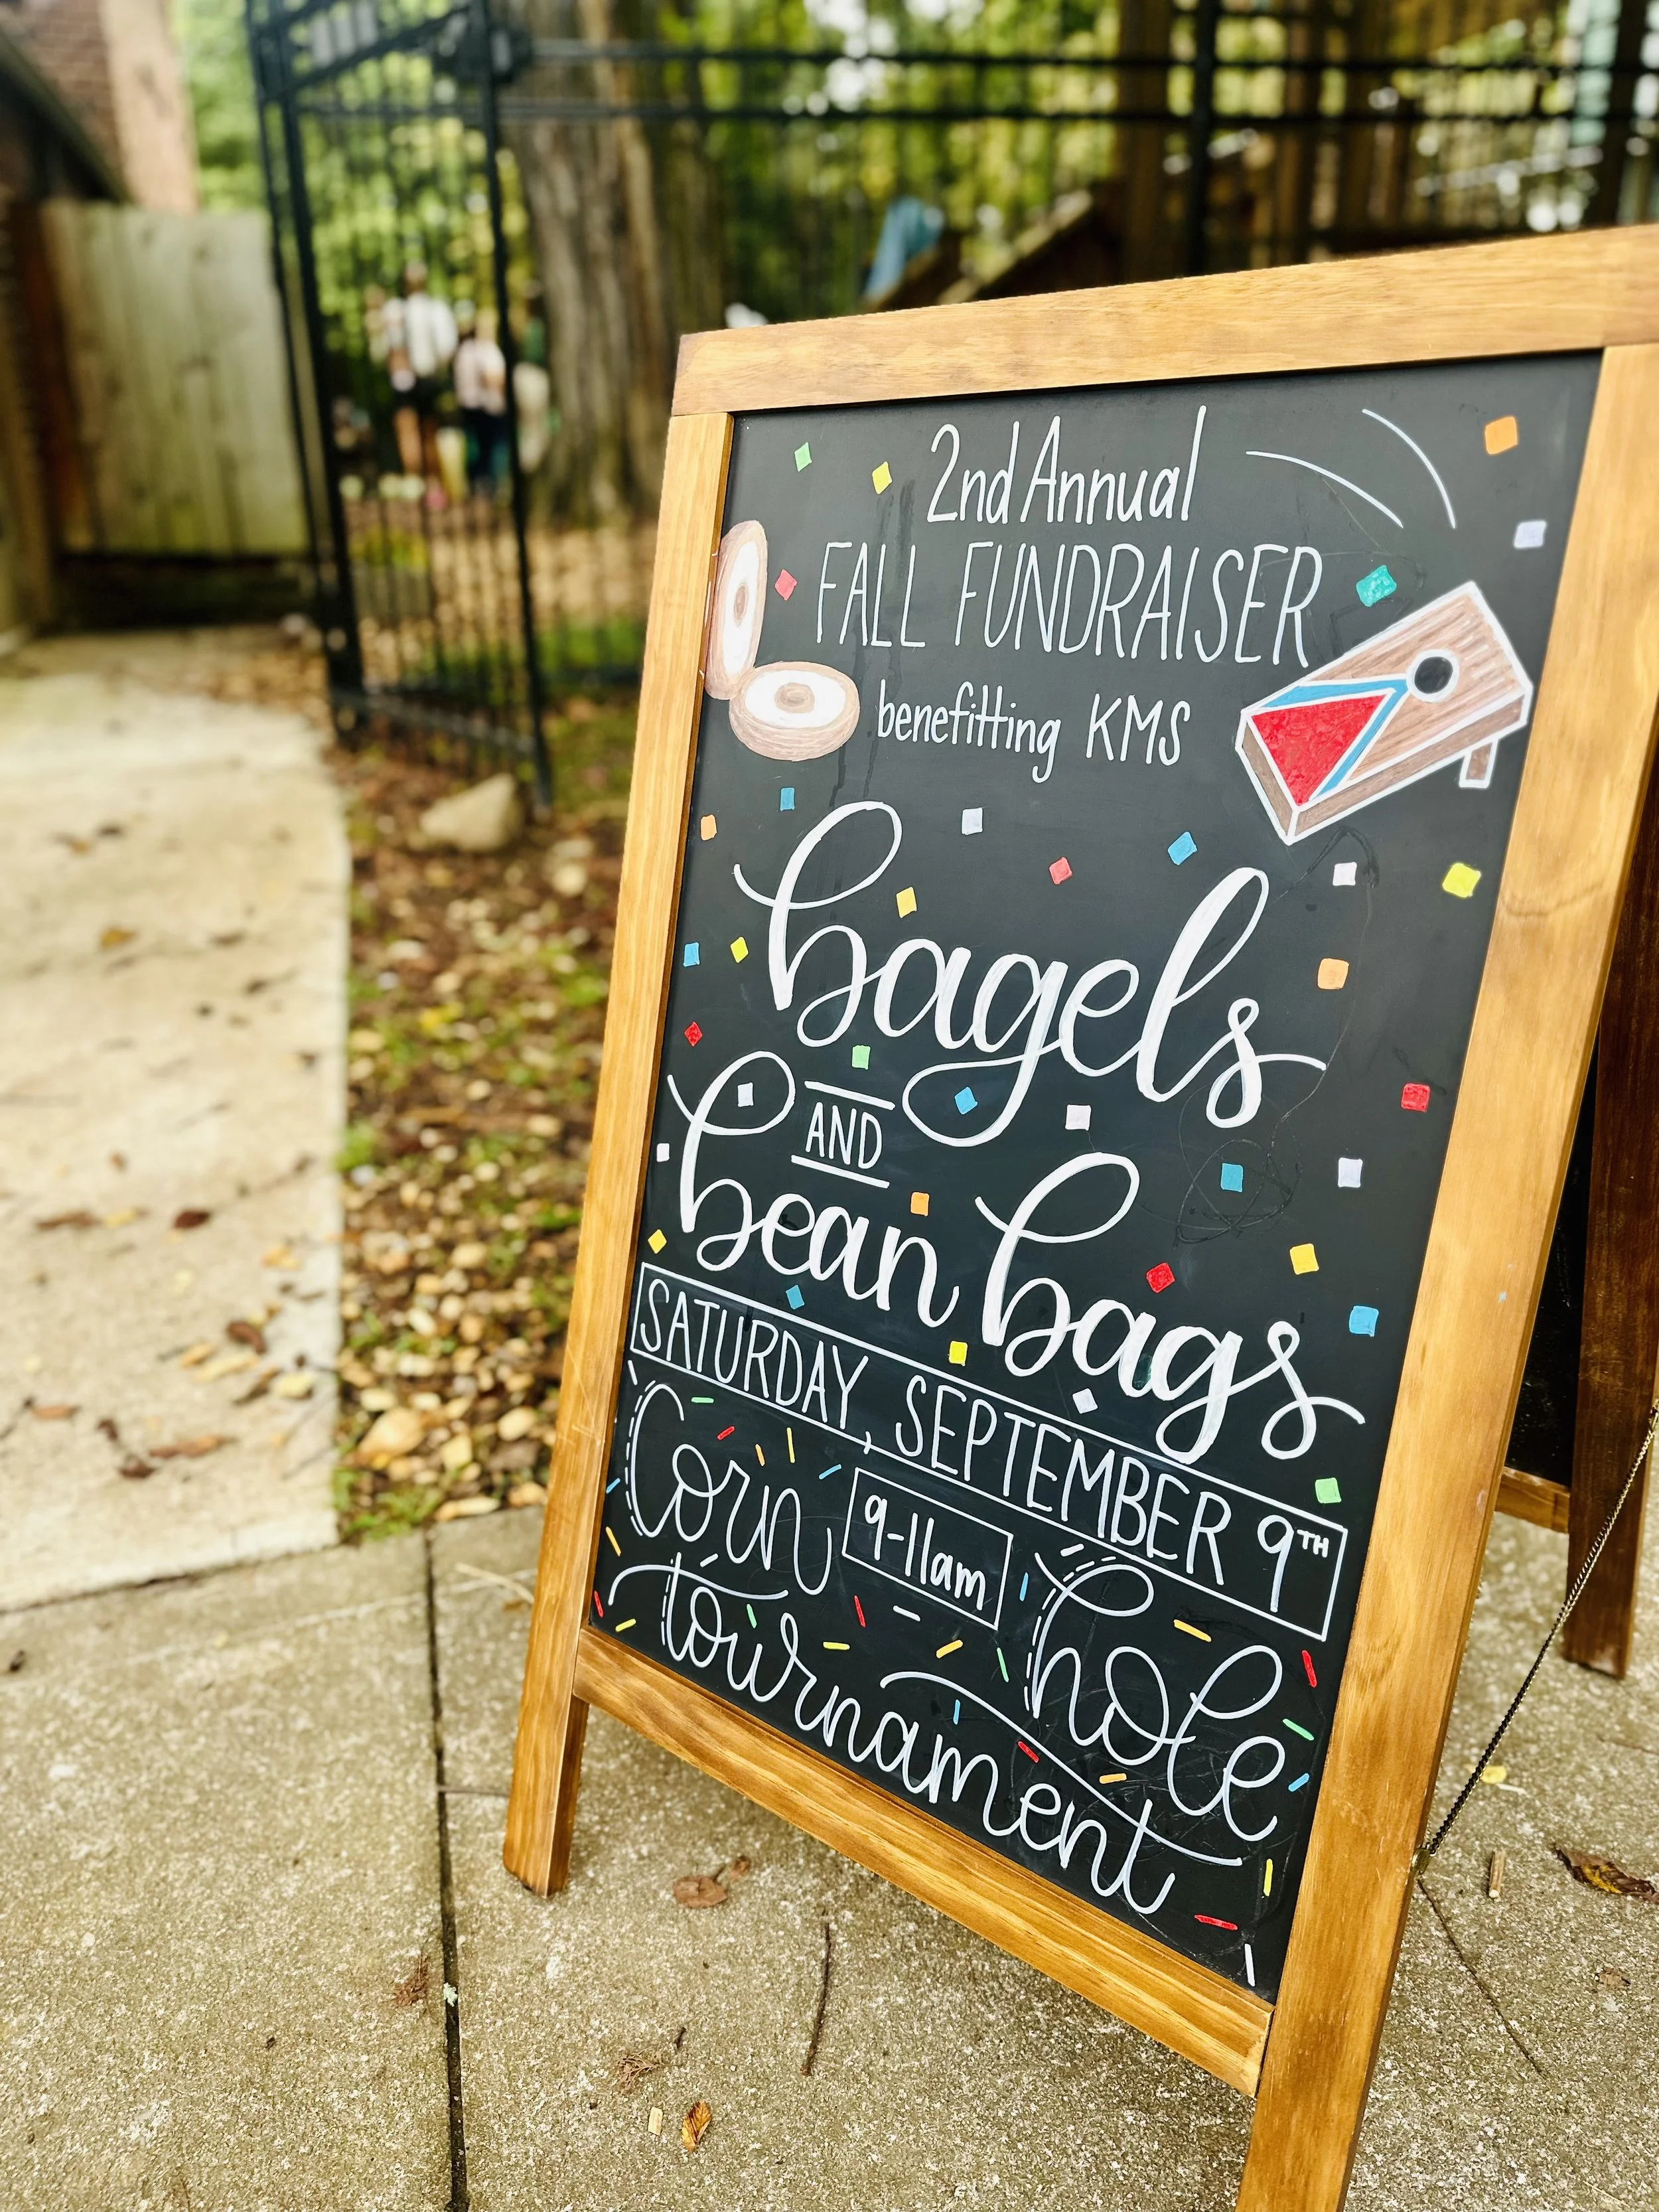 2nd Annual
FALL FUNDRAISER
benefitting KMS
bagels
AND
bean bags
SATURDAY, SEPTEMBER 9TH
Corn 9-11am hole
tournament